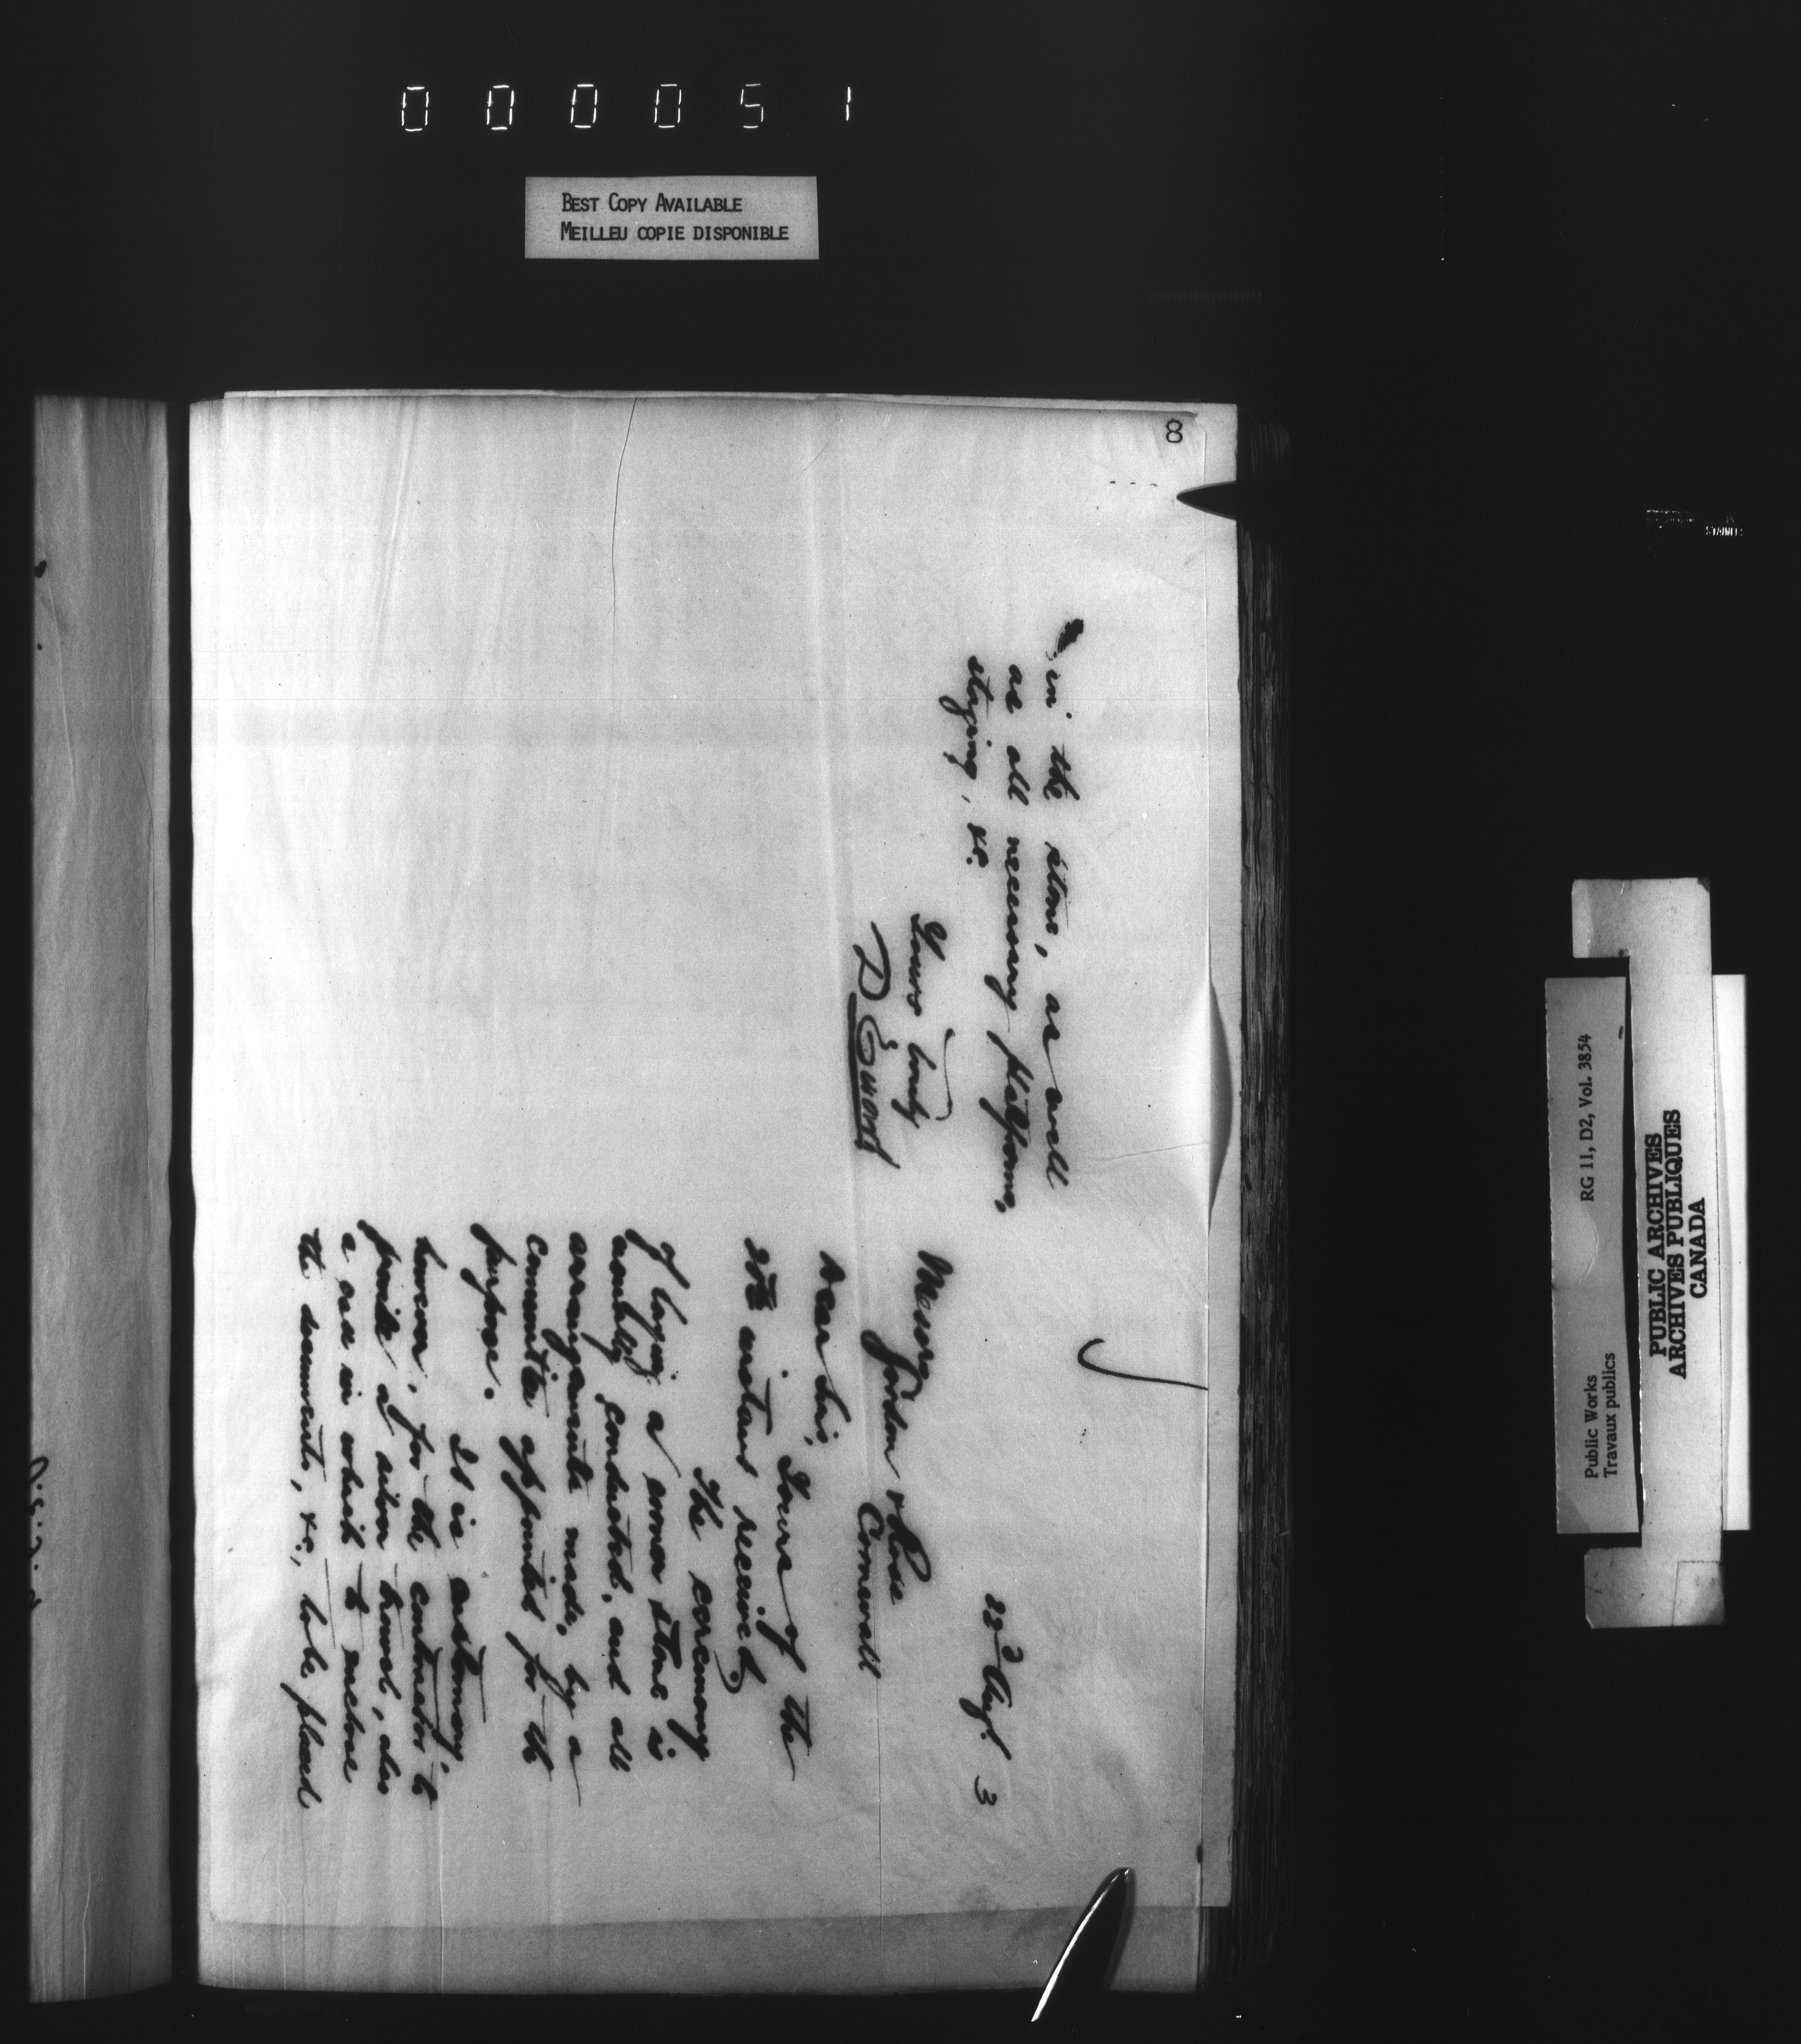 0 0 0 0 5 1
BEST COPY AVAILABLE
MEILLEU COPIE DISPONIBLE
8
22d Augt. 3
Messrs Gordon & Rose
Cornwall
Dear Sir,
Yours of the
20th instant received,
The ceremony
of laying a corner stone is
usually conducted, and all
arrangements made, by a
committee appointed for the
purpose. It is customary,
however, for the contractor to
provide a silver trowel, also
a case in which to enclose
the documents, &c, to be placed
in the stone, as well
as all necessary platforms,
staging, &c.
Yours truly
D Ewart
RG 11, D2, Vol. 3854
Public Works
Travaux publics
PUBLIC ARCHIVES
ARCHIVES PUBLIQUES
CANADA